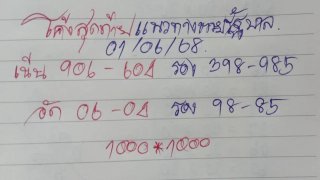 โค้งสุดท้าย แนวทางหวยรัฐบาล.
01/06/68.
เน้น 906-604 รอง 398-985
จัด 06-04 รอง 98-85
1000*1000